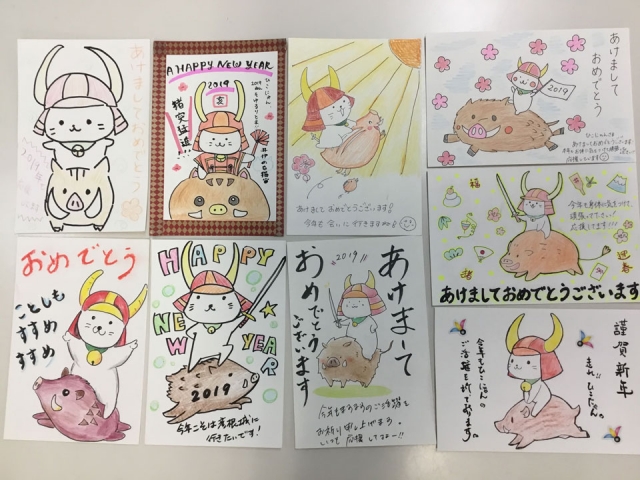 あけまして
おめでとう
A HAPPY NEW YEAR
2019
亥
猪突猛進!!
ひこにゃん
あけまして おめでとうございます!
今年も 会いに 行きますね♪
あけまして
おめでとう
2019
ひこにゃんは
福
今年も身体に気をつけて、
頑張って下さい!
応援してます!!!
迎春
あけましておめでとうございます
おめでとう
ことしも
すすめ
すすめ
HAPPY
NEW
YEAR
2019
今年こそは彦根城に
行きたいです!
2019!!
あけまして
おめでとう
ございます
今年もますますのご活躍を
お祈り申し上げます。
いつも応援してるよー!!
謹賀新年
走れ!!ひこにゃん。
今年もひこにゃんの
ご活躍を祈っております。